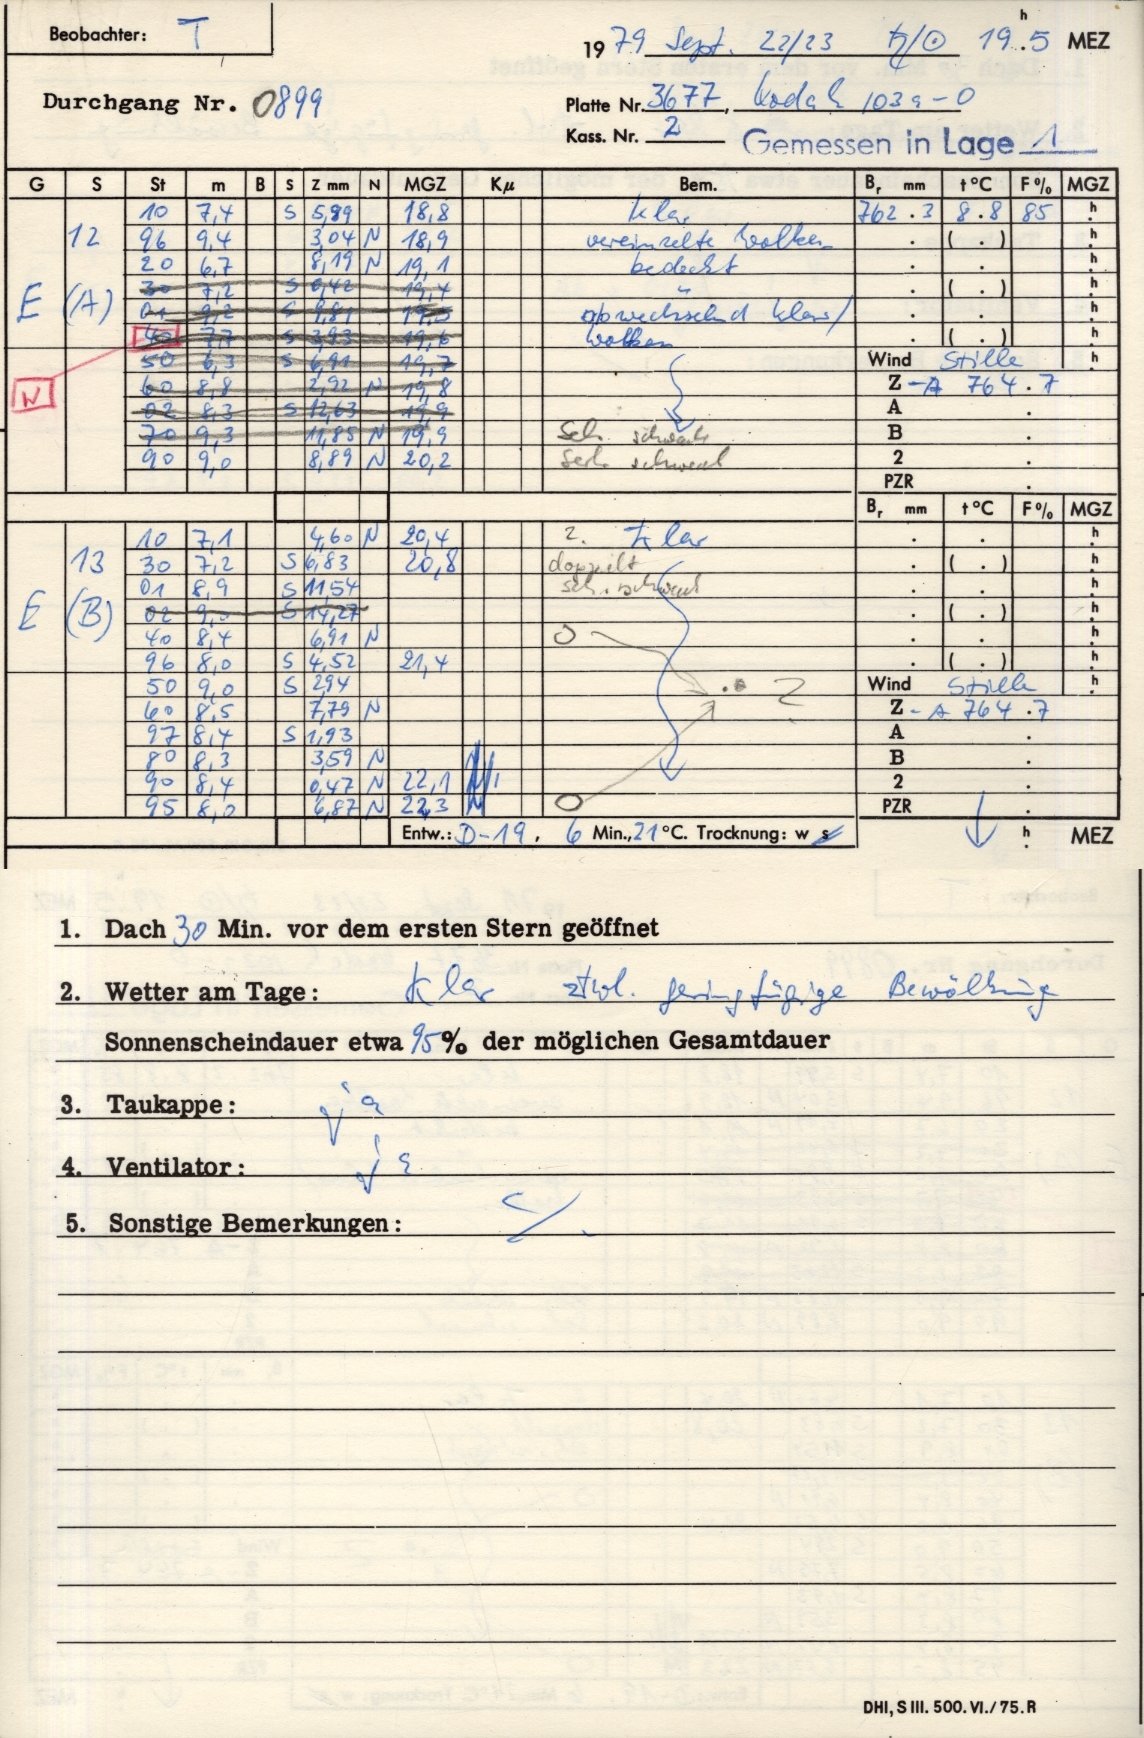 Beobachter: T
1979 Sept. 22/23 ♄/☉ 19h.5 MEZ
Durchgang Nr. 0899
Platte Nr. 3677, Kodak 103a-O
Kass. Nr. 2 Gemessen in Lage 1
G S St m B S Z mm N MGZ Kμ Bem. Br mm t°C F% MGZ
10 7,4 S 5,99 18,8 klar 762.3 8.8 85 h
12 96 9,4 3,04 N 18,9 vereinzelte Wolken . ( . ) h
20 6,7 8,19 N 19,1 bedeckt . . h
E (A) 30 7,2 S 0,42 19,4 " . ( . ) h
01 9,2 S 9,81 abwechselnd klar/ . . h
40 7,7 S 3,93 19,6 wolken . ( . ) h
50 6,3 S 6,91 19,7 Wind Stille h
N 60 8,8 2,92 N 19,8 Z -A 764.7
02 8,3 S 12,63 19,9 A .
70 9,3 11,85 N 19,9 seh. schwach B .
90 9,0 8,89 N 20,2 sehr schwach 2 .
PZR .
Br mm t°C F% MGZ
10 7,1 4,60 N 20,4 2. klar . . h
13 30 7,2 S 6,83 20,8 doppelt . ( . ) h
01 8,9 S 11,54 seh. schwach . . h
E (B) 02 9,0 S 14,27 . ( . ) h
40 8,4 6,91 N . . h
96 8,0 S 4,52 21,4 . ( . ) h
50 9,0 S 2,94 ? Wind Stille h
60 8,5 7,79 N Z -A 764.7
97 8,4 S 1,93 A .
80 8,3 3,59 N B .
90 8,4 0,47 N 22,1 2 .
95 8,0 6,87 N 22,3 PZR .
Entw.: D-19, 6 Min., 21°C. Trocknung: w s h. MEZ
1. Dach 30 Min. vor dem ersten Stern geöffnet
2. Wetter am Tage: klar ztwl. geringfügige Bewölkung
Sonnenscheindauer etwa 95% der möglichen Gesamtdauer
3. Taukappe: ja
4. Ventilator: ja
5. Sonstige Bemerkungen:
DHI, S III. 500. VI./75. R